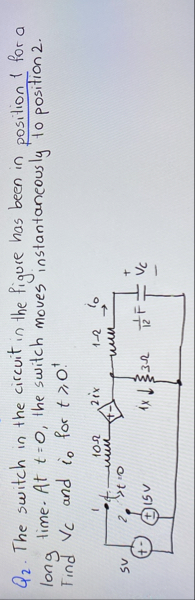 Q2. The switch in the circuit in the figure has been in position 1 for a
long time. At t=0, the switch moves instantaneously to position 2.
Find Vc and io for t≥0⁺
1
10Ω
2ix
1Ω
io
2
t=0
ix
3Ω
1/12 F
+
Vc
−
5V
15V